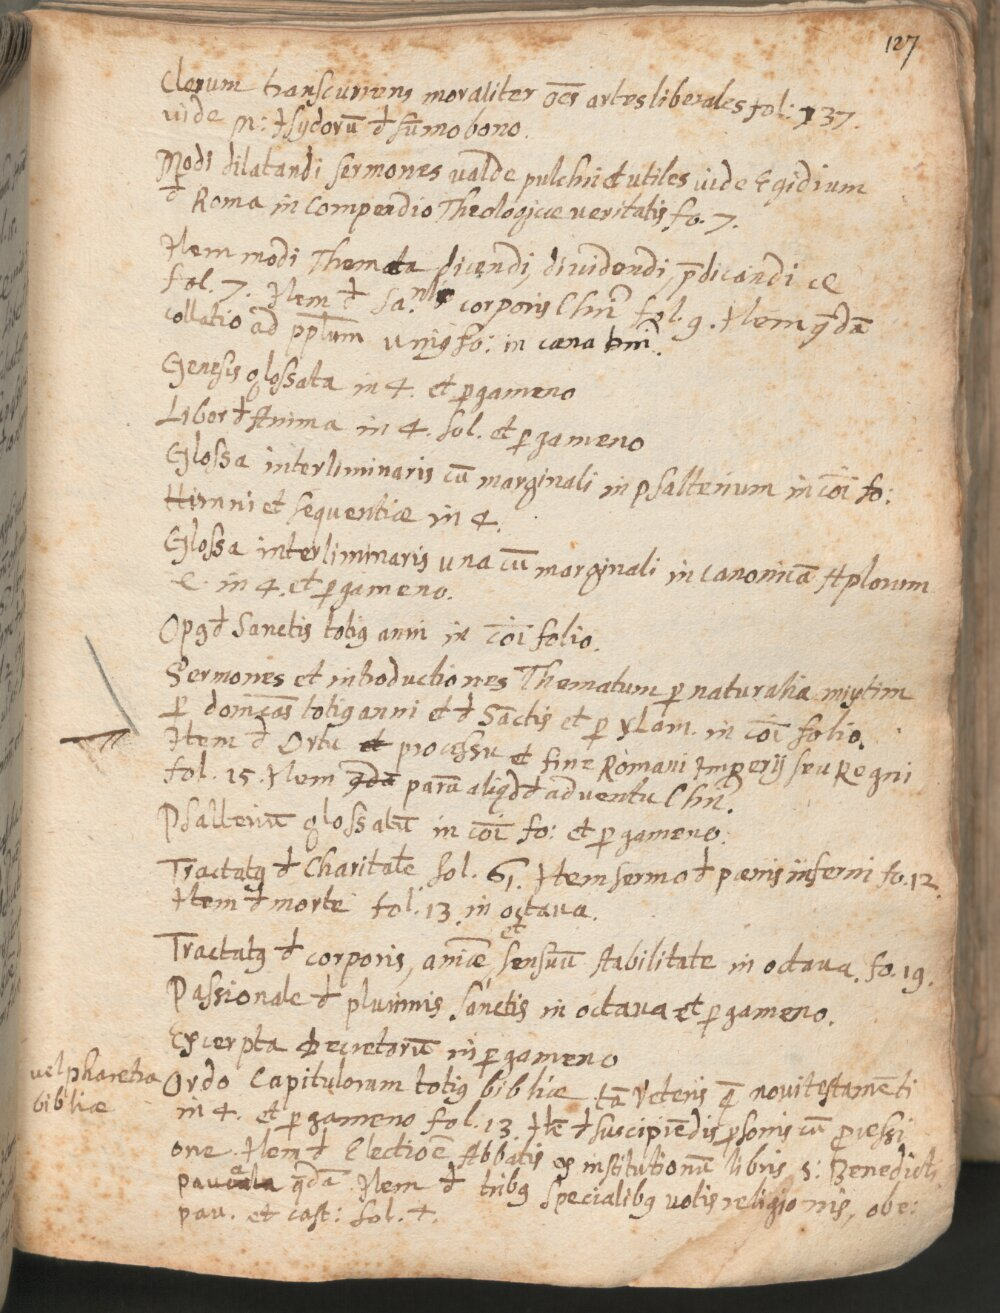 127
Clerum transcurrens moraliter oēs artes liberales fol: 137.
vide in: Isydorū d sūmo bono.
Modi dilatandi sermones valde pulchri et utiles vide Egidium
d Roma in Compendio Theologicæ veritatis fo. 7.
Item modi Themata dicendi, dividendi, p̄dicandi
fol. 7. Item d corporis Chri fol. 9. Item qdā
collatio ad pplum fo: in cæna
Genesis glossata in 4. et pgameno
Liber d Anima in 4. fol. et pgameno
Glossa interliminaris cū marginali in psalterium in cōi fo:
Himni et sequentiæ in 4.
Glossa interliminaris una cū marginali in canonicā Aplorum
in 4. et pgameno.
Opg d Sanctis totig anni in cōi folio.
Sermones et introductiones Thematum p naturalia mixtim
p domcas totig anni et d Sāctis et p in cōi folio.
Item d Ortu et processu et fine Romani Imperij seu Regni
fol. 15. Item parā aliqd d adventu Chri.
Psalteriū glossatū in cōi fo: et pgameno.
Tractatg d Charitate fol. 61. Item sermo d pænis inferni fo. 12.
Item d morte fol. 13. in octava.
et
Tractatg d corporis, animæ, sensuū stabilitate in octava. fo. 19.
Passionale d plurimis sanctis in octava et pgameno.
Excerpta Decretorū in pgameno
vel pharetra
bibliæ
Ordo Capitulorum totig bibliæ tā Veteris q̄ novi testamēti
in 4. et pgameno fol. 13. Itē d suscipiēdis psonis cū pcessi
one. Item d Electioē Abbatis ex institutionū libris s: Benedicti
qdā. Item d tribg specialibg votis religionis, obe:
pau. et cast: fol. 4.